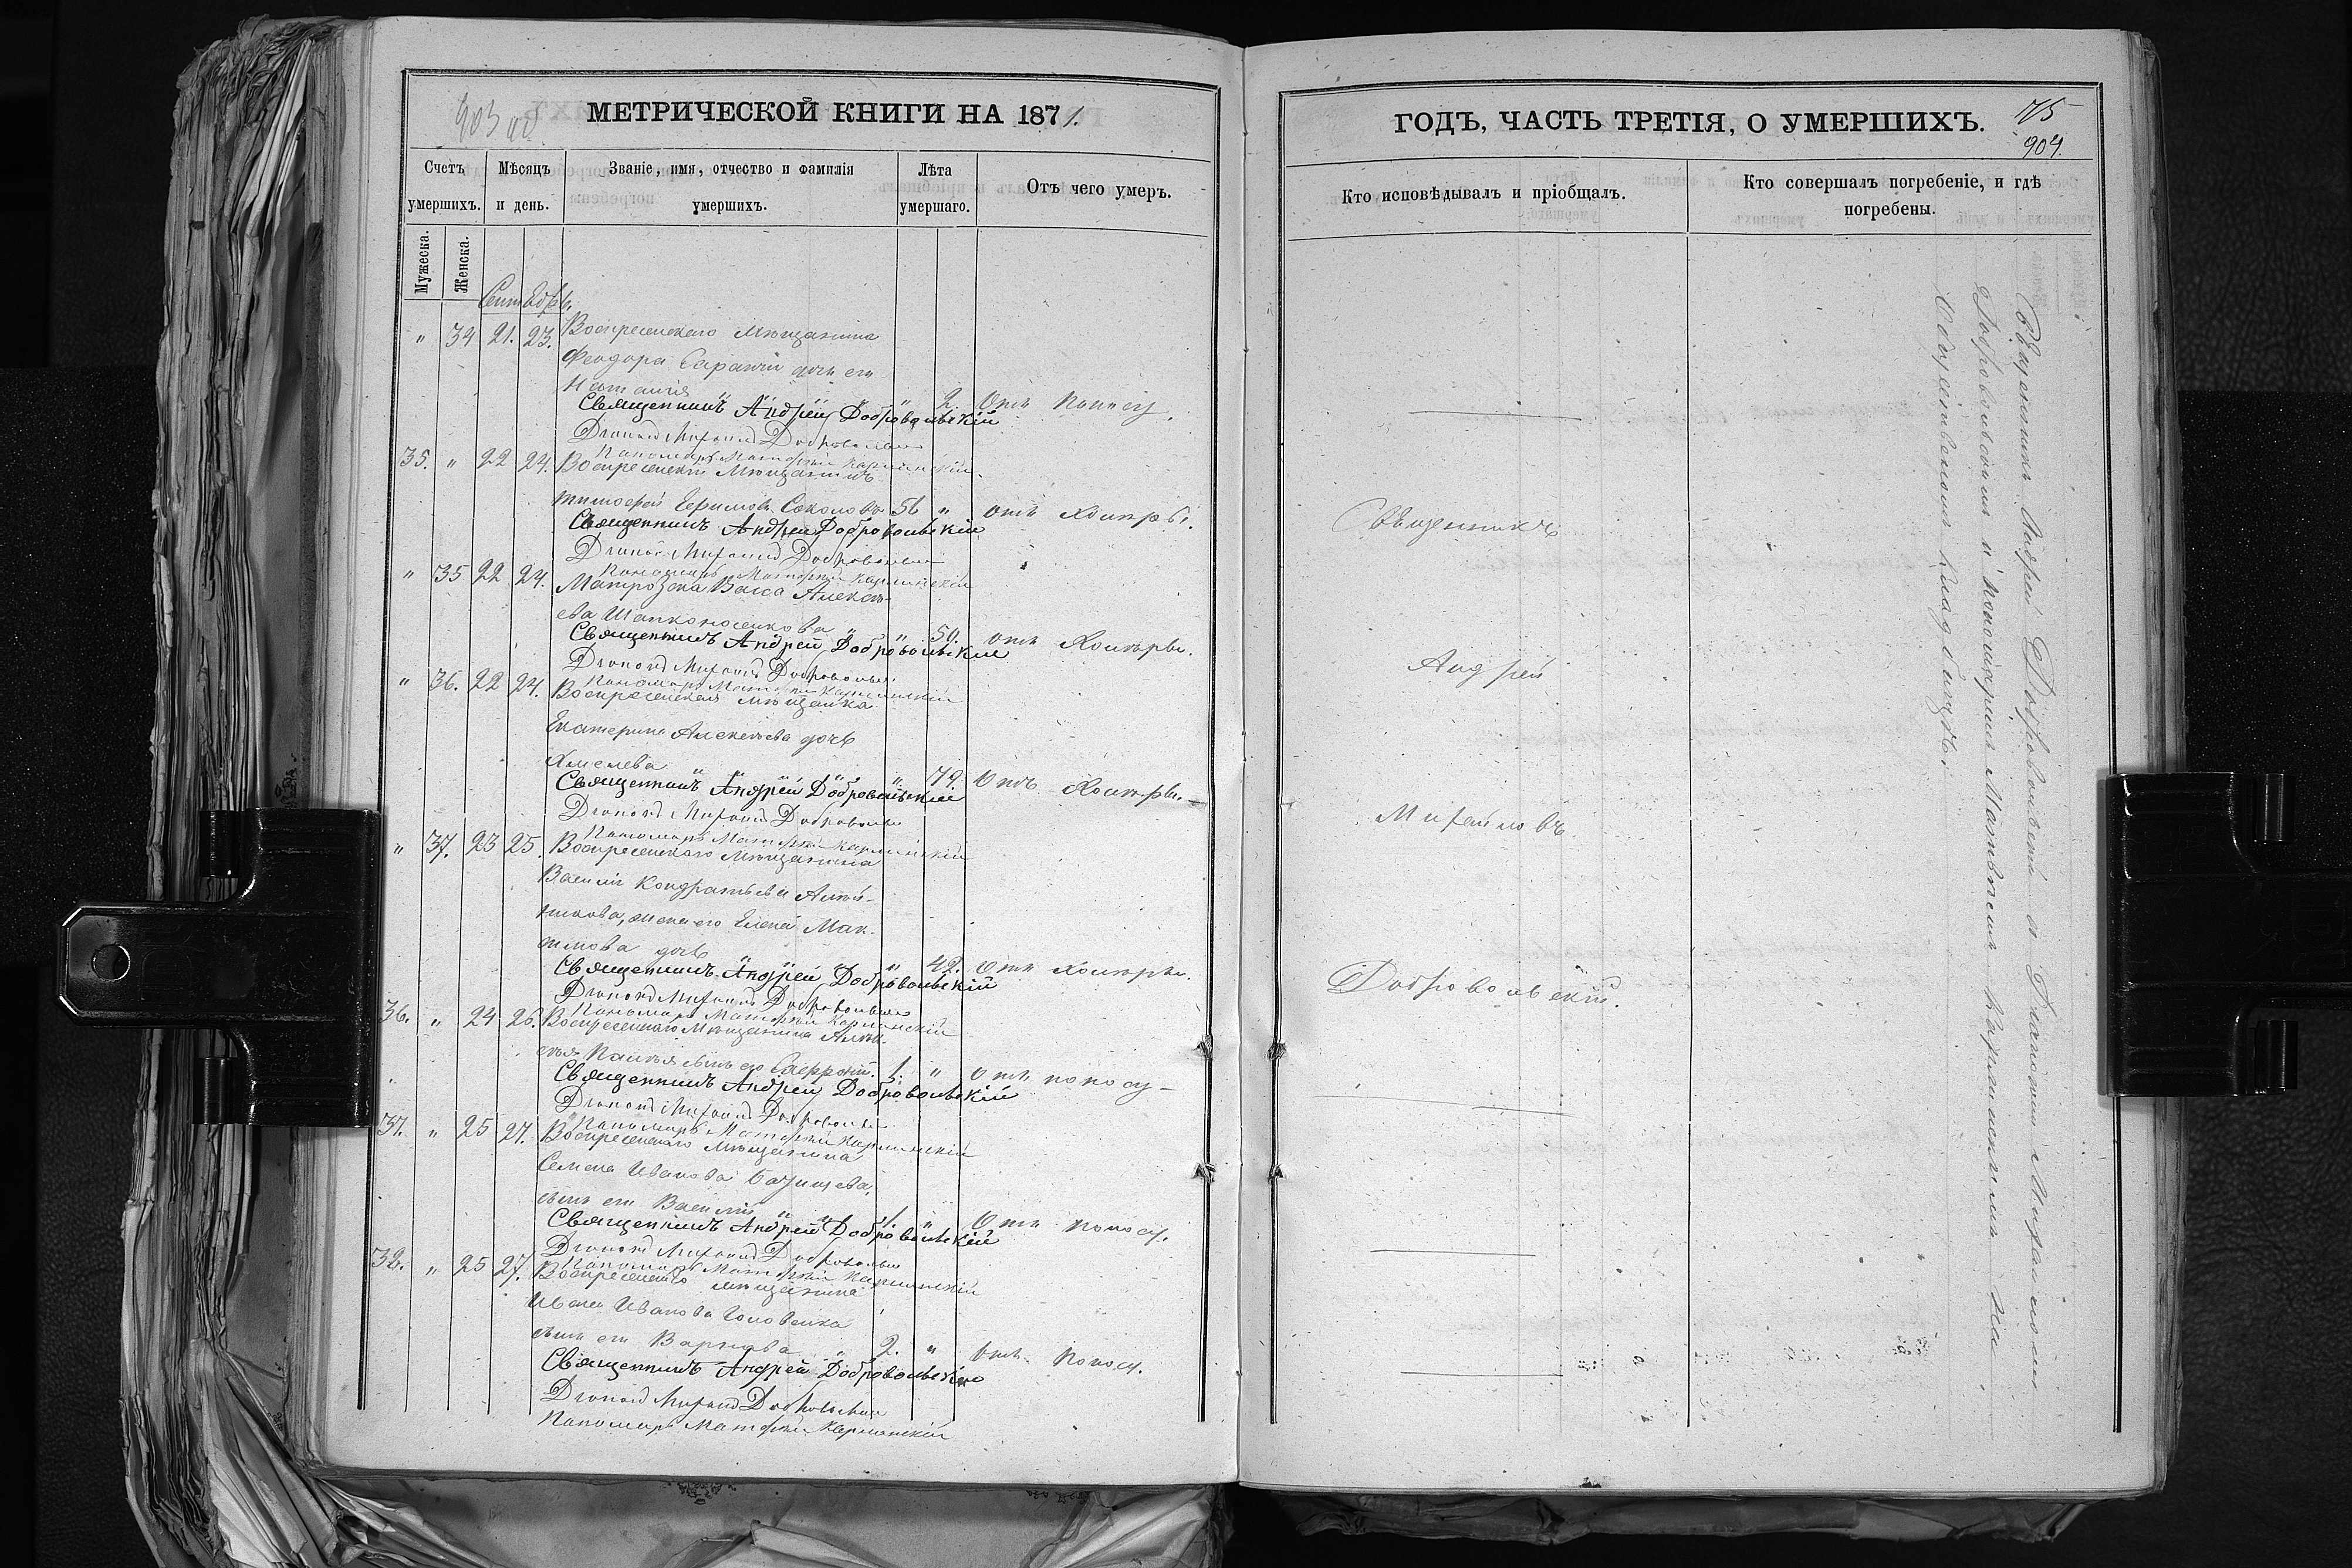 903 об
МЕТРИЧЕСКОЙ КНИГИ НА 1871.
Счетъ умершихъ.
Мѣсяцъ и день.
Званіе, имя, отчество и фамилія умершихъ.
Лѣта умершаго.
Отъ чего умеръ.
Мужеска.
Женска.
Сентябрь.
" 34 21. 23. Воскресенскаго Мѣщанина
Феодора дочь его
Наталія " 2. Отъ поносу.
Священникъ Андрей Добровольскій
Діаконъ Михаилъ Добровольскій
Пономарь Матфей Карминскій
35. " 22 24. Воскресенскій Мѣщанинъ
Тимофей Ефимовъ Соколовъ 56 " отъ холеры.
Священникъ Андрей Добровольскій
Діаконъ Михаилъ Добровольскій
Пономарь Матфей Карминскій
" 35 22 24. Матрозка Васса Алексѣ-
ева Шапконосенкова " 50. отъ Холеры.
Священникъ Андрей Добровольскій
Діаконъ Михаилъ Добровольскій
Пономарь Матфей Карминскій
" 36. 22 24. Воскресенская мѣщанка
Екатерина Алексѣева дочь
Хмелева " 72. Отъ Холеры.
Священникъ Андрей Добровольскій
Діаконъ Михаилъ Добровольскій
Пономарь Матфей Карминскій
" 37. 23 25. Воскресенскаго Мѣщанина
Василія Кондратьева
жена его Елена Мак-
симова дочь " 42. Отъ холеры.
Священникъ Андрей Добровольскій
Діаконъ Михаилъ Добровольскій
Пономарь Матфей Карминскій
36. " 24 26. Воскресенскаго Мѣщанина
сынъ его 1. " Отъ поносу
Священникъ Андрей Добровольскій
Діаконъ Михаилъ Добровольскій
Пономарь Матфей Карминскій
37. " 25 27. Воскресенскаго мѣщанина
Семена Иванова
сынъ его Василій 1. " Отъ поносу.
Священникъ Андрей Добровольскій
Діаконъ Михаилъ Добровольскій
Пономарь Матфей Карминскій
38. " 25 27. Воскресенскаго мѣщанина
Ивана Иванова Головенка
сынъ его Варнава 2. " Отъ поносу.
Священникъ Андрей Добровольскій
Діаконъ Михаилъ Добровольскій
Пономарь Матфей Карминскій
ГОДЪ, ЧАСТЬ ТРЕТІЯ, О УМЕРШИХЪ.
904.
Кто исповѣдывалъ и пріобщалъ.
Кто совершалъ погребеніе, и гдѣ погребены.
Священникъ
Андрей
Михайловъ
Добровольскій.
Священникъ Андрей Добровольскій съ Діакономъ Михаиломъ
Добровольскимъ и пономаремъ Матвѣемъ Карминскимъ на
Общественномъ кладбищѣ.